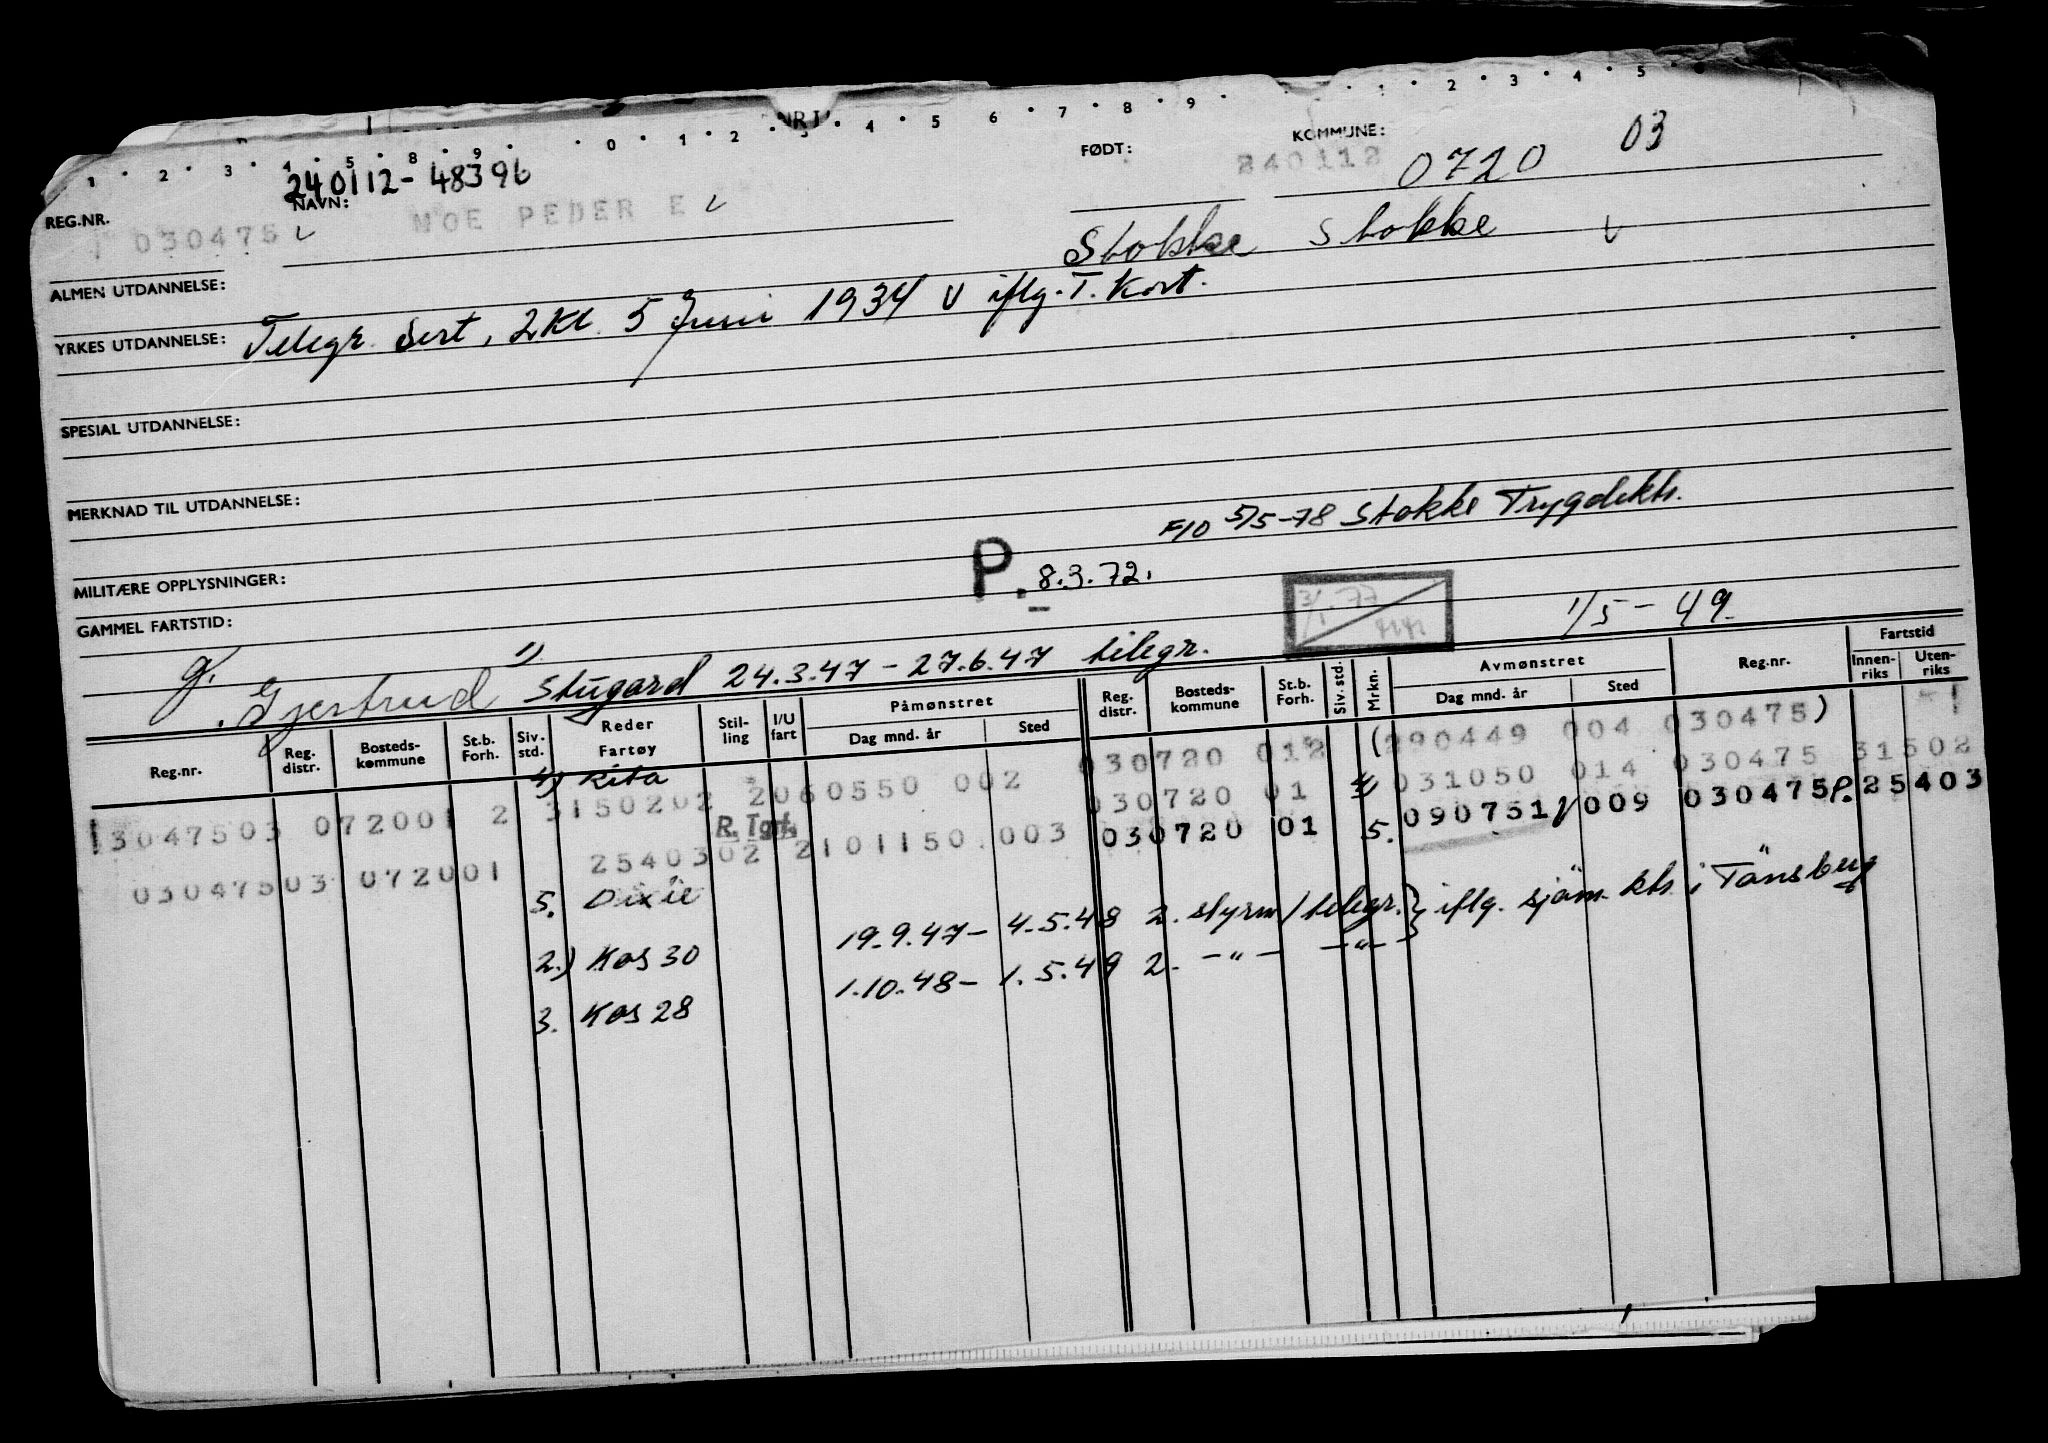 1 · 2 · 3 · 4 · 5 · 8 · 9 · · 0 · 1 · 2 · 3 · 4 · 5 6 · 7 · 8 · 9 · · 1 · 2 · 3 · 4 · 5
240112-48396
REG.NR. NAVN: FØDT: KOMMUNE: 03
030475 MOE PEDER E 240112 0720
Stokke Stokke
ALMEN UTDANNELSE:
YRKES UTDANNELSE: Telegr. Sert, 2Kl. 5 Juni 1934 iflg. T. Kort.
SPESIAL UTDANNELSE:
MERKNAD TIL UTDANNELSE:
F10 5/5-78 Stokke Trygdekts.
MILITÆRE OPPLYSNINGER: P. 8.3.72.
GAMMEL FARTSTID: 1/5-49
g. Gjertrud 1) Stugard 24.3.47 - 27.6.47 telegr.
Reg.nr. Reg. distr. Bosteds-kommune St.b. Forh. Siv. std. Reder Fartøy Stil-ling I/U fart Påmønstret Dag mnd. år Sted Reg. distr. Bosteds-kommune St.b. Forh. Siv. std. Mrkn. Avmønstret Dag mnd. år Sted Reg.nr. Fartstid Innen-riks Uten-riks
030720 012 (290449 004 030475)
4) Rita
13047503 072001 2 3150202 2060550 002 030720 01 4) 031050 014 030475 31502
R. Tgrf.
03047503 072001 2540302 2101150 003 030720 01 5. 090751 009 030475 P. 25403
5. Dixie
2.) Kos 30 19.9.47 - 4.5.48 2. styrm/telegr. } iflg. sjøm. kts. i Tönsberg
3. Kos 28 1.10.48 - 1.5.49 2. -"- -"-